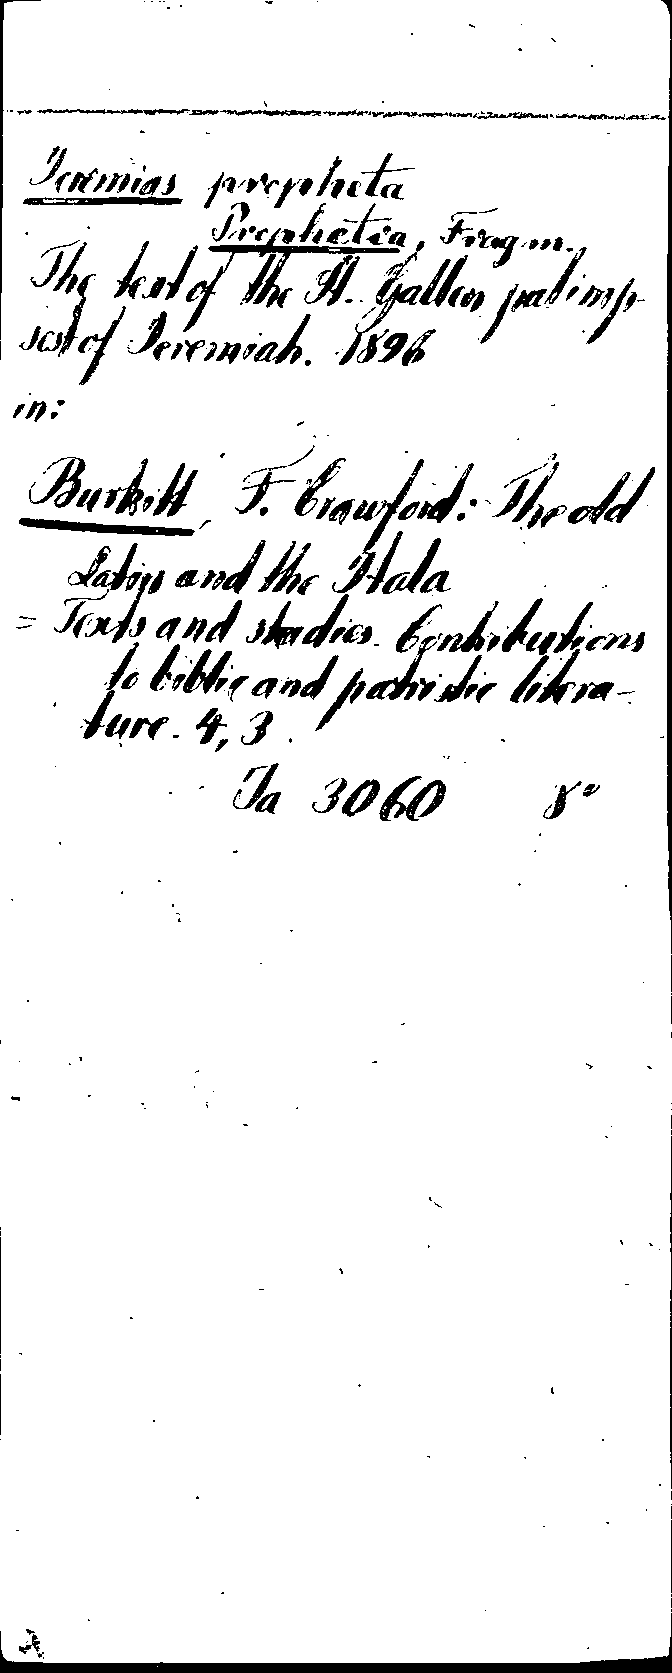 Jeremias propheta
Prophetia, Fragm.
The text of the St. Gallen palimp-
sest of Jeremiah. 1896
in:
Burkitt, F. Crawford: The old
Latin and the Itala
= Texts and studies. Contributions
to biblic and patristic litera-
ture. 4, 3.
Ja 3060 8°